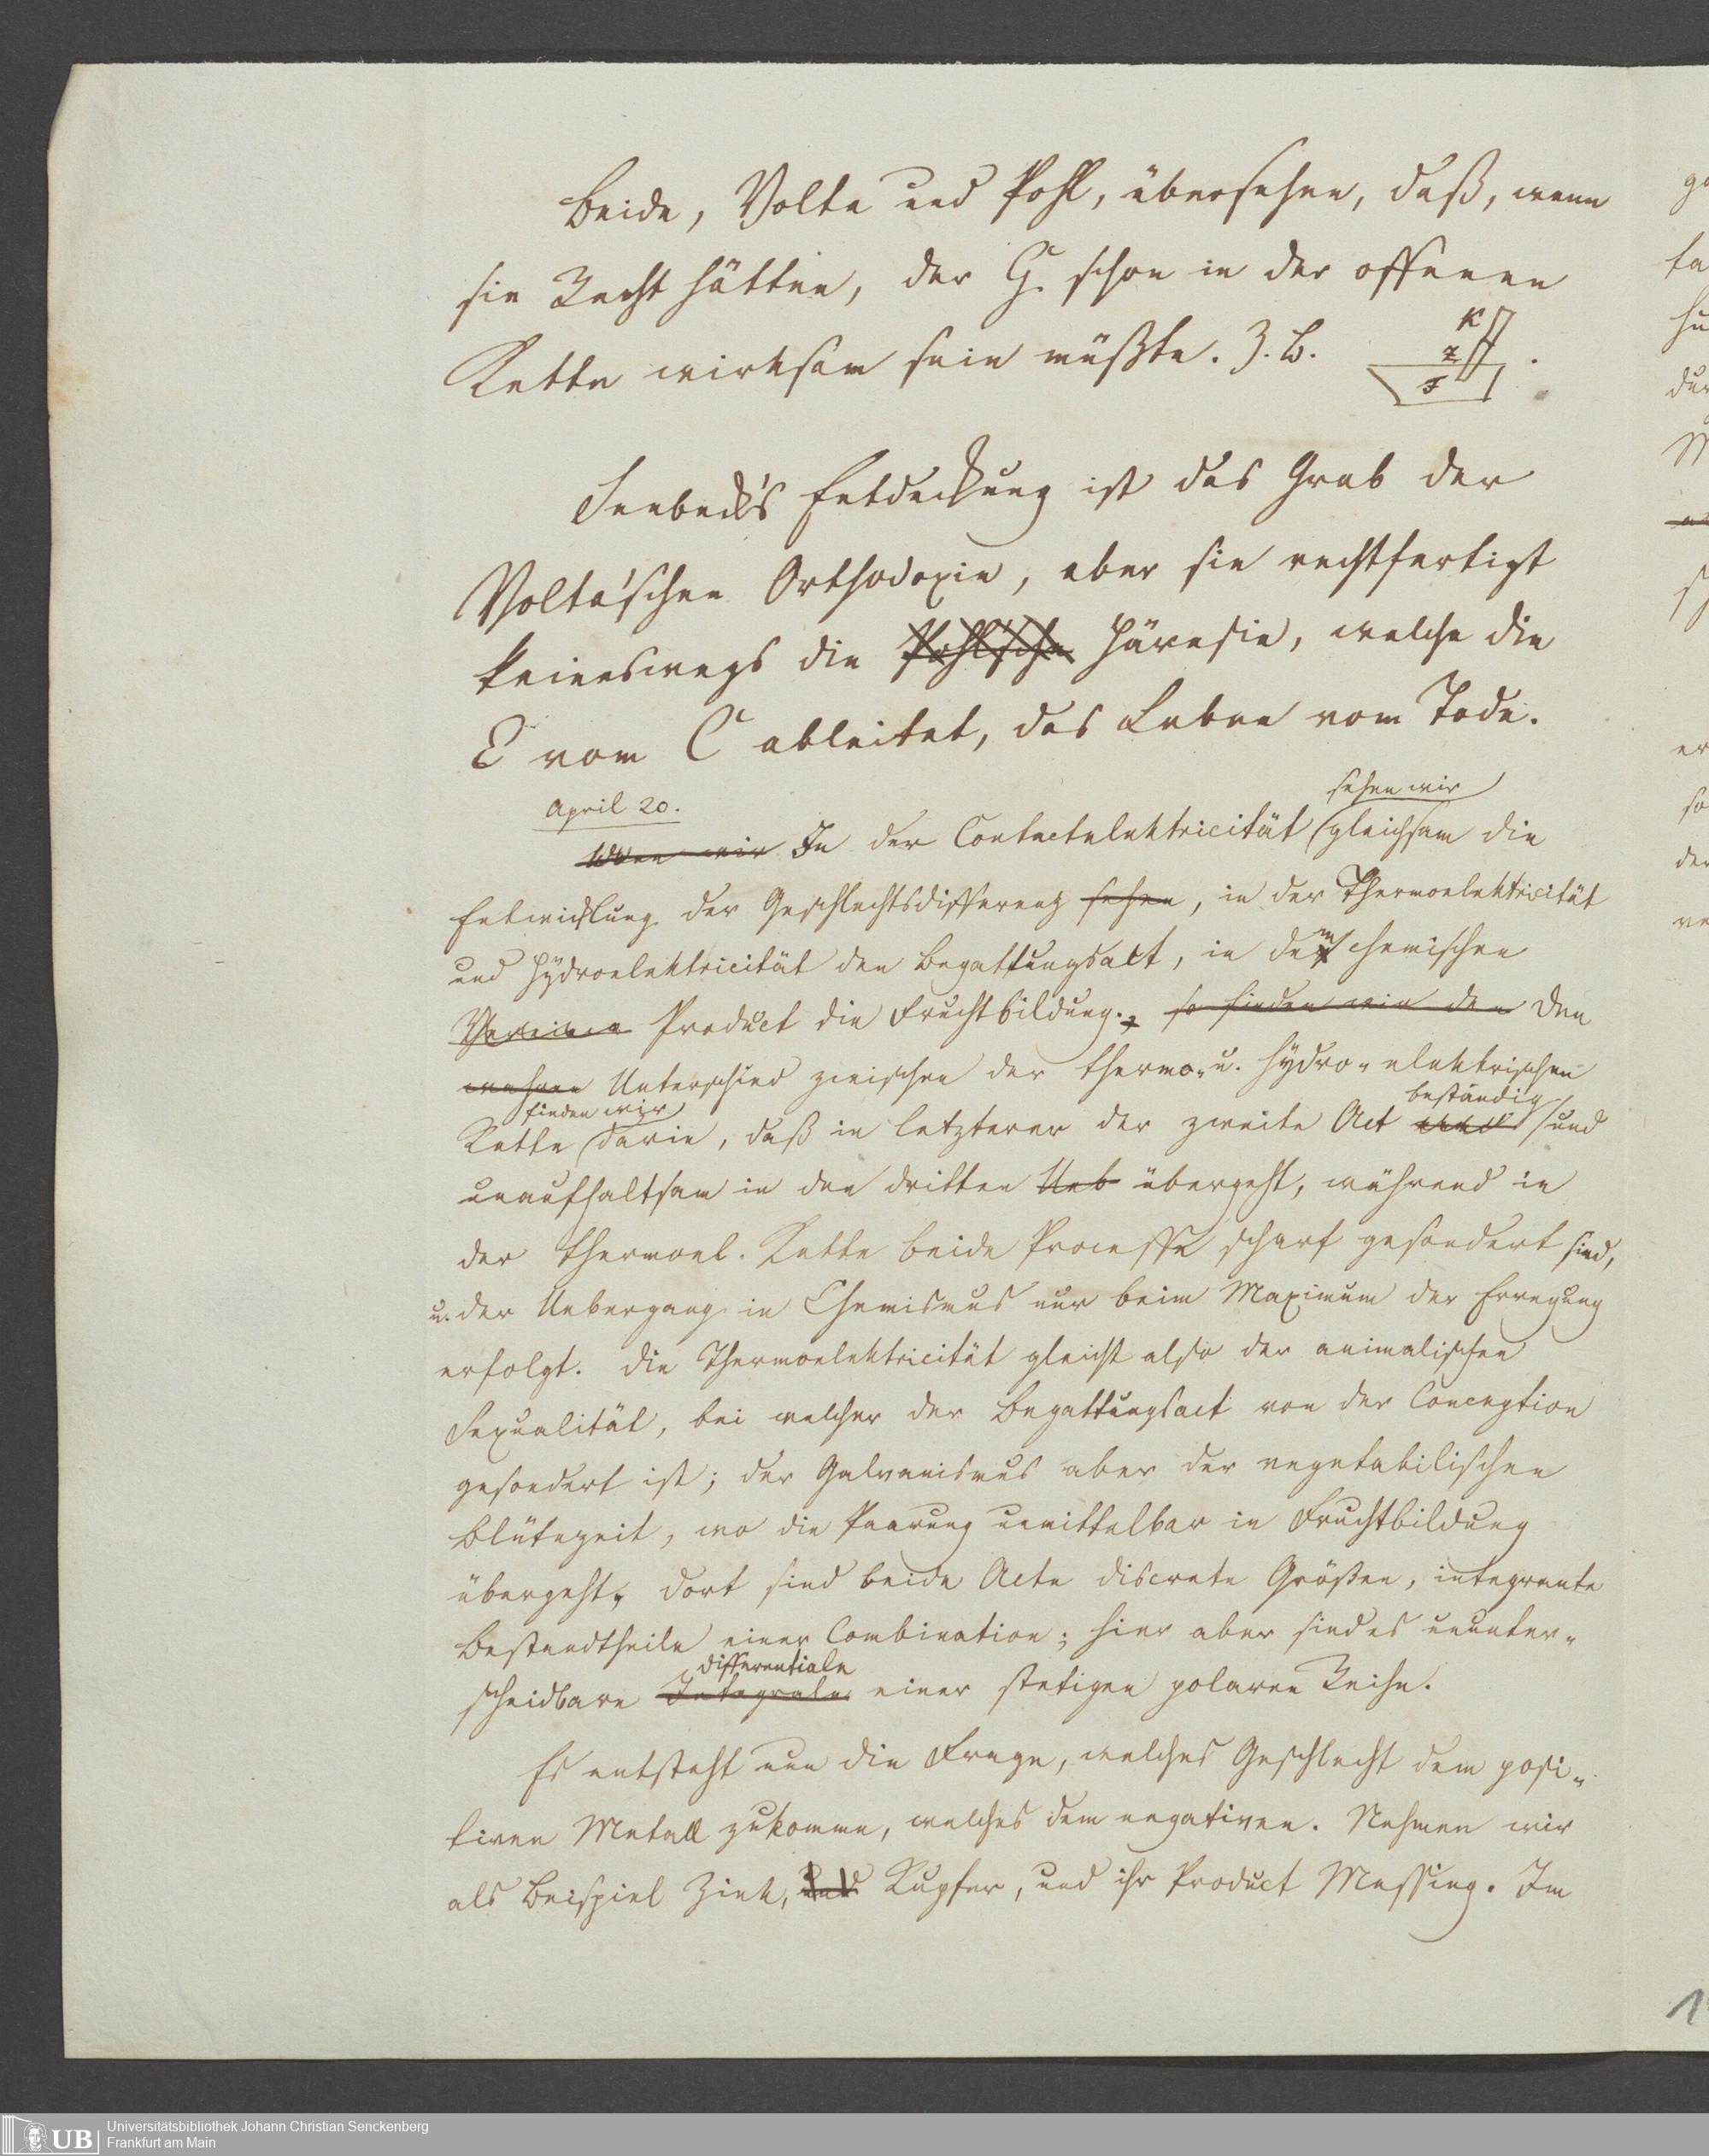 Beide, Volta und Pohl, übersehen, daß, wenn
sie Recht hätten, der G. schon in der offenen
Kette wirksam sein müßte. Z. B.
K
Z
F
Seebeck's Entdeckung ist das Grab der
Volta'schen Orthodoxie, aber sie rechtfertigt
keineswegs die Pohl'sche Häresie, welche die
E vom C ableitet, das Leben vom Tode.
April 20.
sehen wir
Wenn wir In der Contactelektricität gleichsam die
Entwicklung der Geschlechtsdifferenz sehen, in der Thermoelektricität
und Hydroelektricität den Begattungsact, in dem chemischen
Product die Fruchtbildung. so finden wir den Den
wahren Unterschied zwischen der thermo- u. hydro-elektrischen
finden wir
beständig
Kette darin, daß in letzterer der zweite Act und und
unaufhaltsam in den dritten Ueb übergeht, während in
der thermoel. Kette beide Processe scharf gesondert sind,
u. der Uebergang in Chemismus nur beim Maximum der Erregung
erfolgt. Die Thermoelektricität gleicht also der animalischen
Sexualität, bei welcher der Begattungsact von der Conception
gesondert ist; der Galvanismus aber der vegetabilischen
Blütezeit, wo die Paarung unmittelbar in Fruchtbildung
übergeht, dort sind beide Acte discrete Größen, integrante
Bestandtheile einer Combination; hier aber sind es ununter-
differentiale
scheidbare Integrale einer stetigen polaren Reihe.
Es entsteht nun die Frage, welches Geschlecht dem posi-
tiven Metall zukomme, welches dem negativen. Nehmen wir
als Beispiel Zink, und Kupfer, und ihr Product Messing. Im
UB
Universitätsbibliothek Johann Christian Senckenberg
Frankfurt am Main